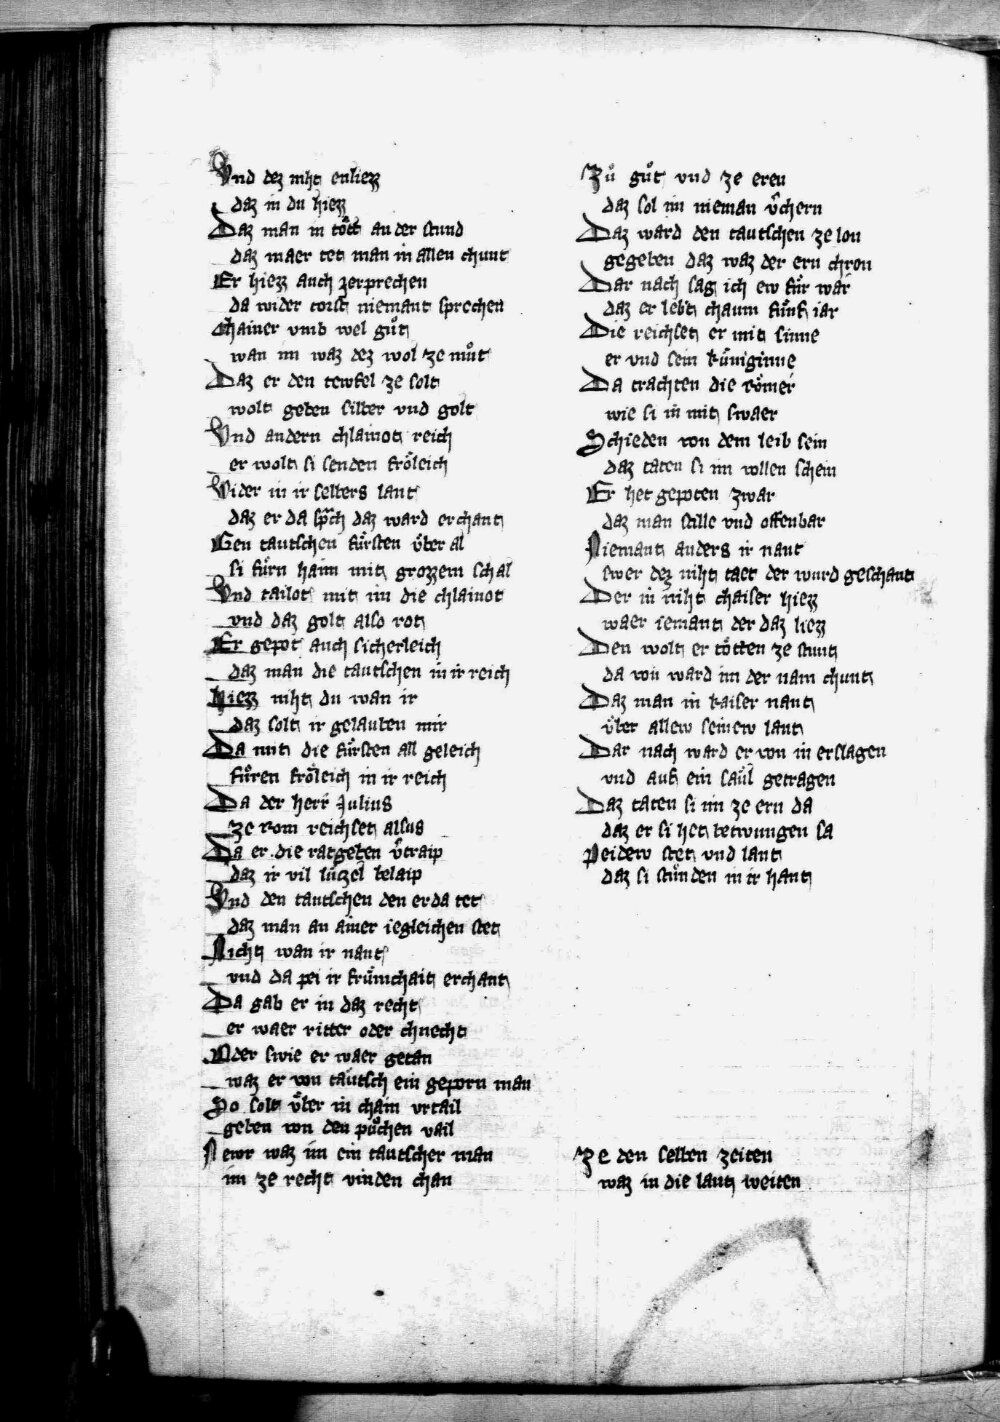 Vnd dez niht enliezz
daz in du hiezz
Daz man in toͤtt an der stund
daz maer tet man in allen chunt
Er hiezz auch zerprechen
da wider torst niemant sprechen
Chainer vmb wel guͦt
wan im waz dez wol ze muͦt
Daz er den tewfel ze solt
wolt geben silber vnd golt
Vnd andern chlainot reich
er wolt si senden froͤleich
Wider in ir selbers lant
daz er da sprach daz ward erchant
Gen tautschen fuͤrsten vͤber al
si fuͤrn haim mit grozzem schal
Vnd tailot mit im die chlainot
vnd daz golt also rot
Er gepot auch sicherleich
daz man die tautschen in ir reich
Hiezz niht du wan ir
daz solt ir gelauben mir
Da mit die fuͤrsten all geleich
fuͤren froͤleich in ir reich
Da der herr Julius
ze rom reichset alsus
Da er die ratgeben v̂traip
daz ir vil luͤtzel belaip
Vnd den tautschen den er da tet
daz man an ainer iegleichen stet
Nicht wan ir nant
vnd da pei ir fruͤmchait erchant
Da gab er in daz recht
er waer ritter oder chnecht
Oder swie er waer getan
waz er von tautsch ein geporn man
So solt vͤber in chain vrtail
geben von den puͦchen vail
Newr waz im ein tautscher man
im ze recht vinden chan
Zuͦ guͦt vnd ze eren
daz sol im nieman v̂chern
Daz ward den tautschen ze lon
gegeben daz waz der ern chron
Dar nach sag ich ew fuͤr war
daz er lebt chaum fuͤnf iar
Die reichset er mit sinne
er vnd sein kuͤniginne
Da trachten die roͤmer
wie si in mit swaer
Schieden von dem leib sein
daz taten si im vollen schein
Er het gepoten zwar
daz man stille vnd offenbar
Niemant anders ir nant
swer dez niht taet der wurd geschant
Der in niht chaiser hiezz
waer iemant der daz liezz
Den wolt er toͤtten ze stunt
da von ward im der nam chunt
Daz man in kaiser nant
vͤber allew seinew lant
Dar nach ward er von in erslagen
vnd auf ein sauͤl getragen
Daz taten si im ze ern da
daz er si het betwungen sa
Peidew stet vnd lant
daz si stuͤnden in ir hant
Ze den selben zeiten
waz in die lant weiten